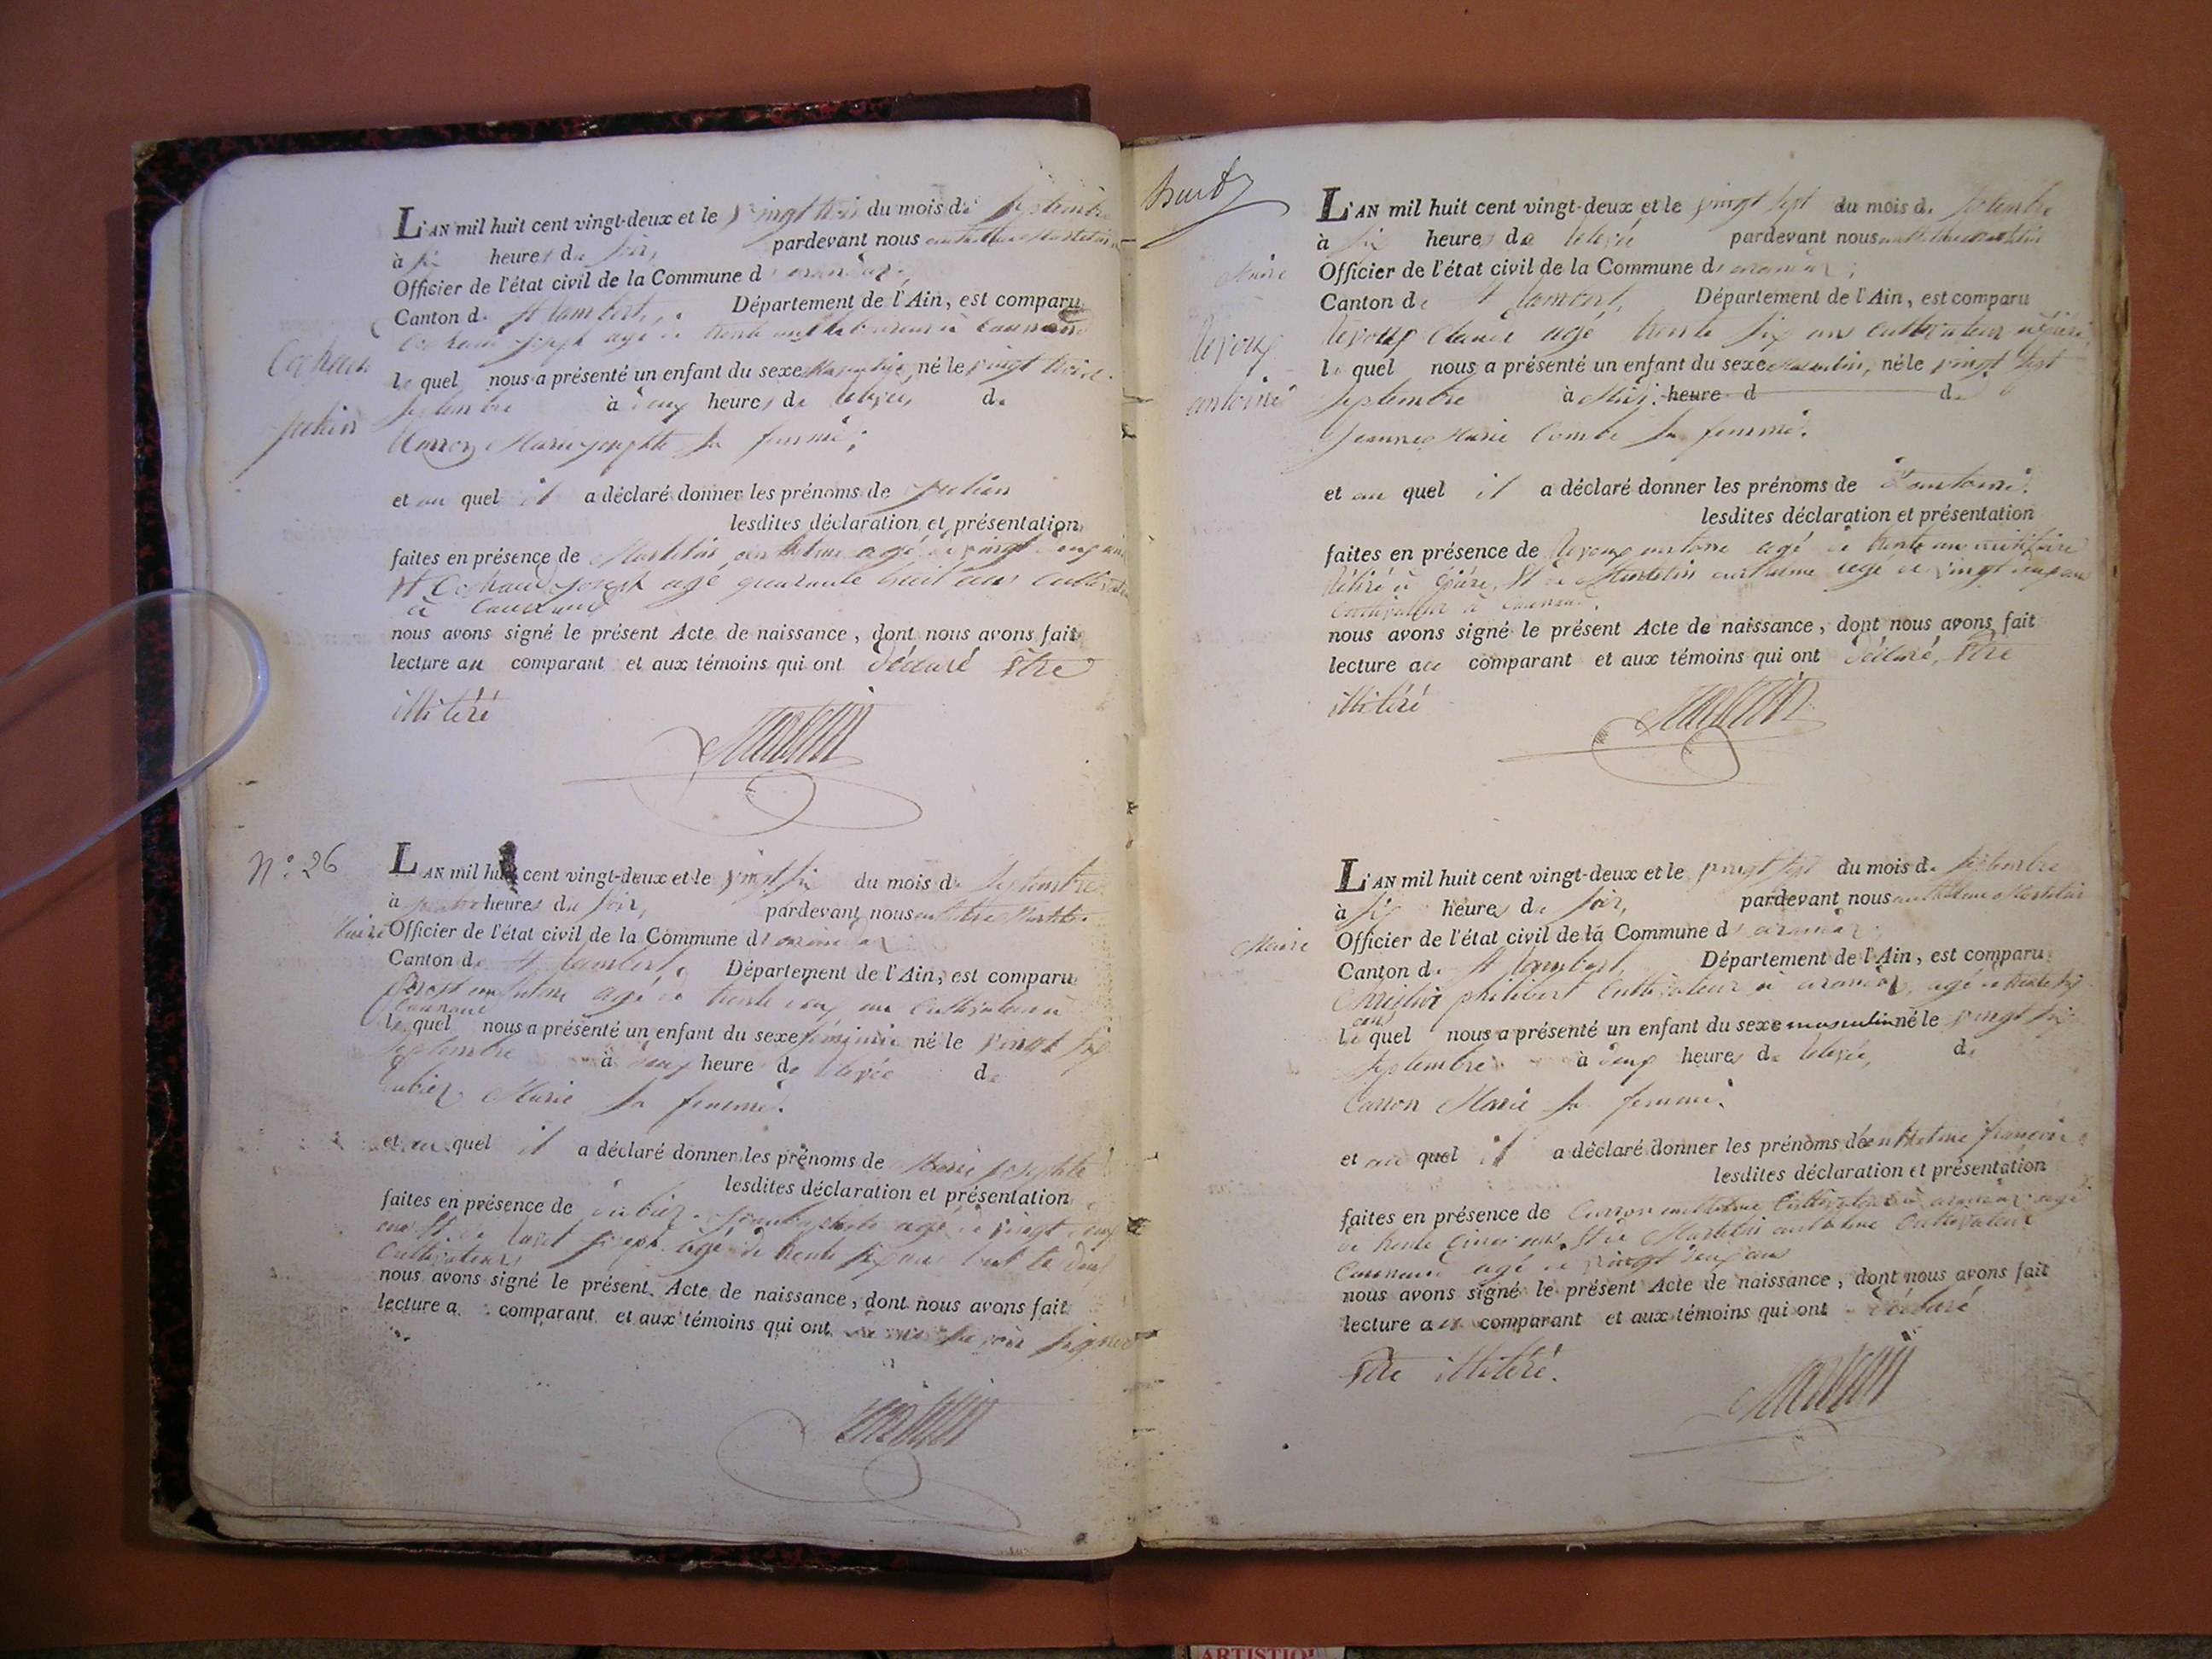 L'AN mil huit cent vingt-deux et le vingt trois du mois de Septembre
à six heures du soir, pardevant nous anthelme Martelin
Officier de l'état civil de la Commune d'arandas,
Canton de St Rambert, Département de l'Ain, est comparu
Joseph agé de trente
Cochaud
le quel nous a présenté un enfant du sexe Masculin, né le vingt trois
Septembre à deux heures de relevée, de
julien
Marie josephte sa femme;
et au quel il a déclaré donner les prénoms de julien
lesdites déclaration et présentation
faites en présence de Martelin anthelme agé de vingt deux ans
St Cochaud joseph agé quarante huit ans cultivateur
à
nous avons signé le présent Acte de naissance, dont nous avons fait
lecture au comparant et aux témoins qui ont déclaré être
illitéré
Martelin
N.º 26
L'AN mil huit cent vingt-deux et le vingt six du mois de Septembre
à quatre heures du soir, pardevant nous anthelme Martelin
Maire Officier de l'état civil de la Commune d'arandas
Canton de St Rambert, Département de l'Ain, est comparu
anthelme agé de trente cultivateur
le quel nous a présenté un enfant du sexe féminin né le vingt six
Septembre à deux heure de relevée de
Marie sa femme.
et au quel il a déclaré donner les prénoms de Marie josephte
lesdites déclaration et présentation
faites en présence de agé de vingt deux
joseph agé de trente six ans tout te deux
Cultivateurs
nous avons signé le présent Acte de naissance, dont nous avons fait
lecture a comparant et aux témoins qui ont signer
Martelin
L'AN mil huit cent vingt-deux et le vingt sept du mois de Septembre
à six heures de relevée pardevant nous anthelme Martelin
Maire Officier de l'état civil de la Commune d'arandas,
Canton de St Rambert, Département de l'Ain, est comparu
Revoux Claude agé trente six ans cultivateur
Revoux
le quel nous a présenté un enfant du sexe Masculin, né le vingt sept
antoine
Septembre à Midi. heure d de
Jeanne Marie Combe sa femme.
et au quel il a déclaré donner les prénoms de antoine.
lesdites déclaration et présentation
faites en présence de Revoux antoine agé de trente ans militaire
rétiré à St de Martelin anthelme agé de vingt deux ans
Cultivateur à
nous avons signé le présent Acte de naissance, dont nous avons fait
lecture au comparant et aux témoins qui ont déclaré, être
illitéré
Martelin
L'AN mil huit cent vingt-deux et le vingt sept du mois de Septembre
à six heures du soir, pardevant nous anthelme Martelin
Maire Officier de l'état civil de la Commune d'arandas
Canton de St Rambert, Département de l'Ain, est comparu
philibert Cultivateur à arandas, agé de trente six
ans
le quel nous a présenté un enfant du sexe masculin né le vingt six
Septembre à deux heures de relevée, de
Carron Marie sa femme.
et au quel il a déclaré donner les prénoms de anthelme françois
lesdites déclaration et présentation
faites en présence de Carron anthelme Cultivateur à arandas agé
de trente cinq ans, St de Martelin anthelme Cultivateur
agé de vingt deux ans
nous avons signé le présent Acte de naissance, dont nous avons fait
lecture au comparant et aux témoins qui ont déclaré
être illitéré.
Martelin
ARTISTIQ